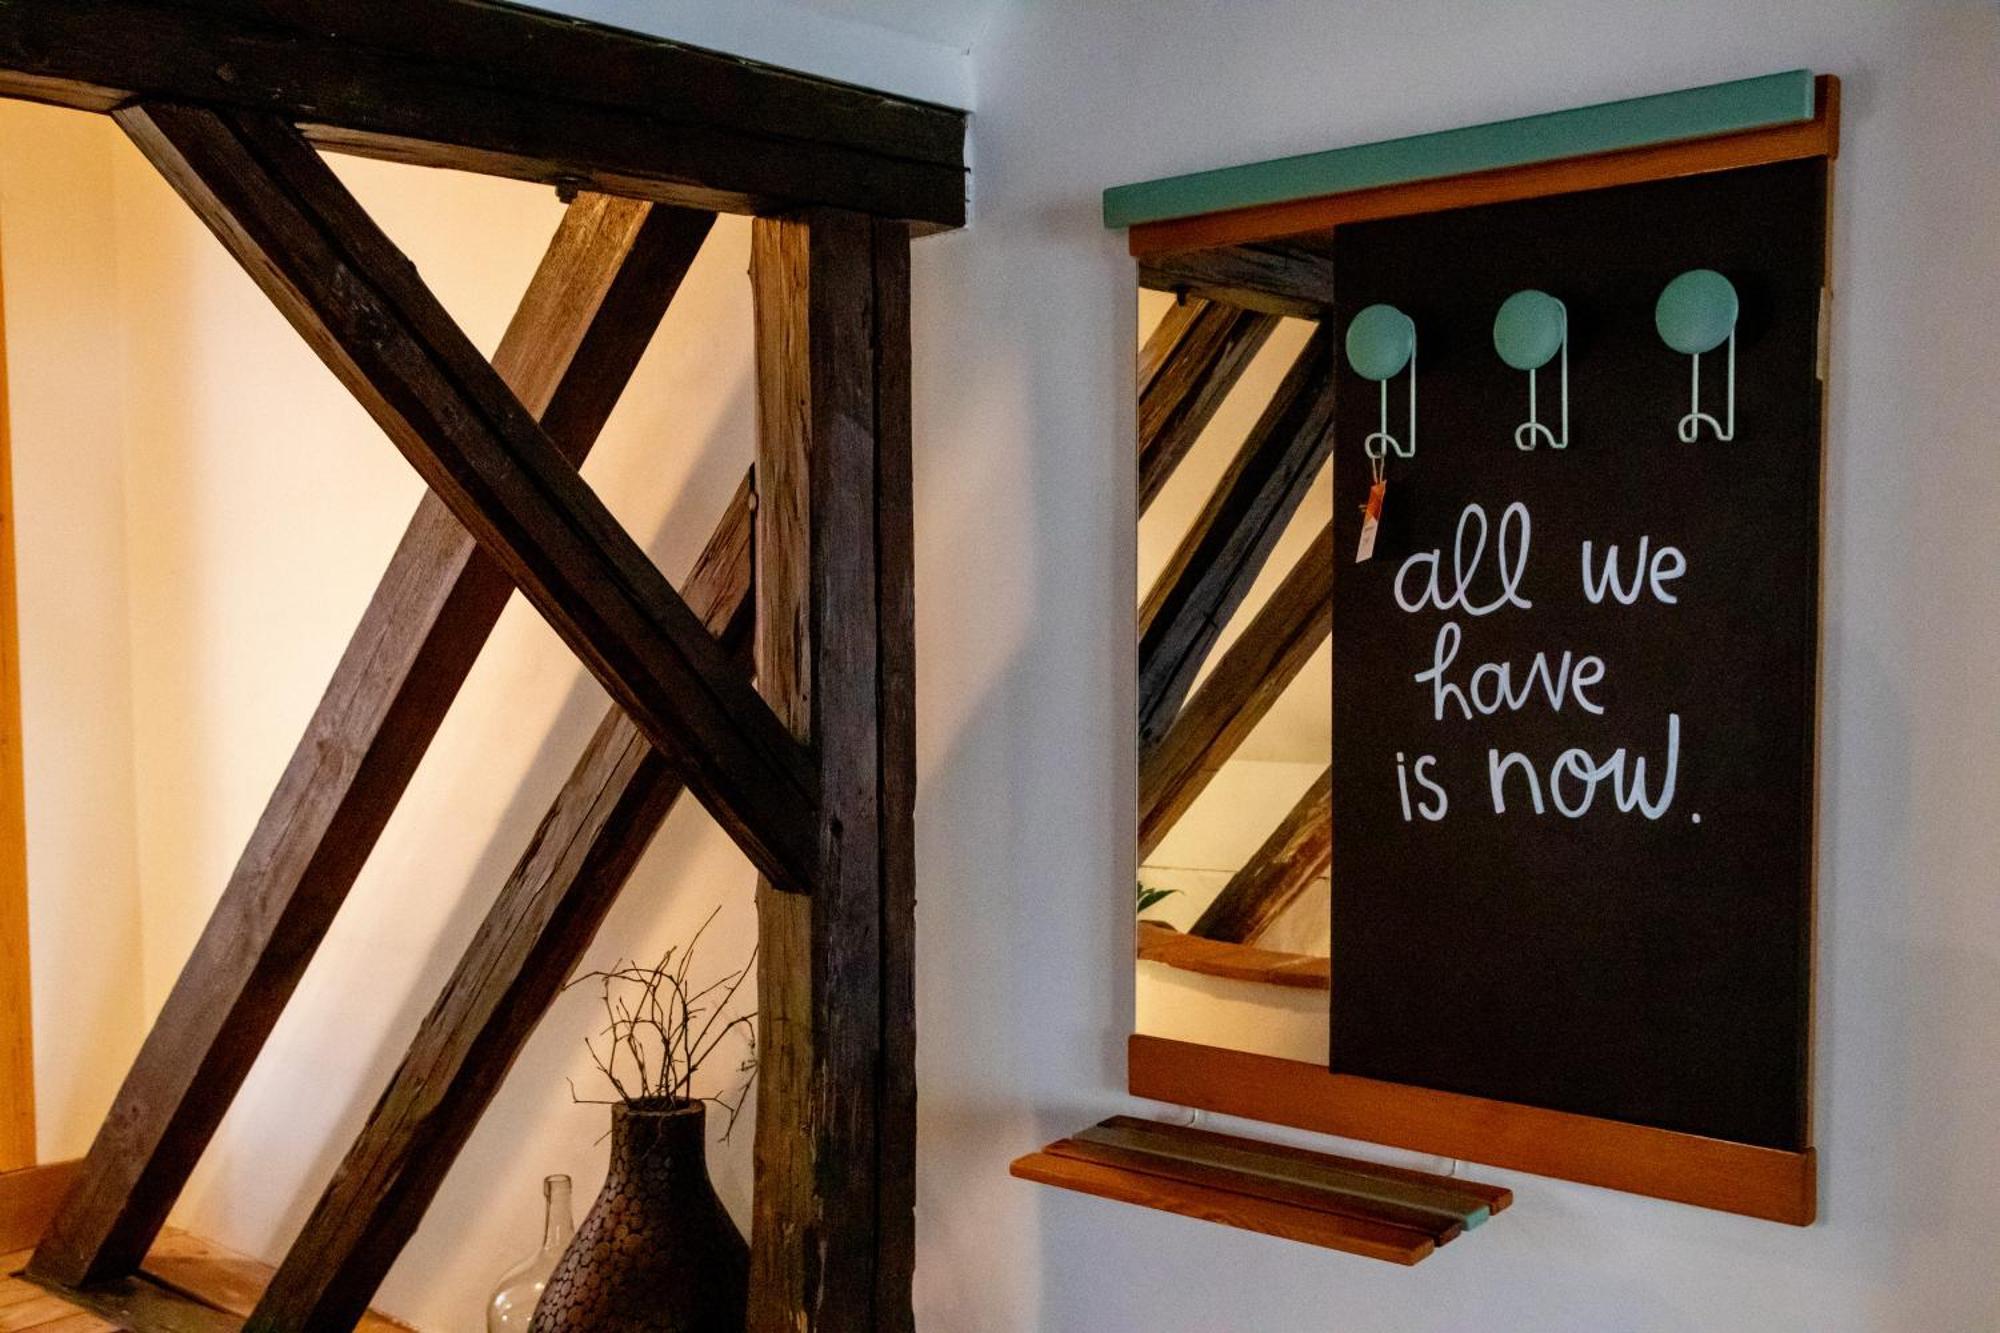 all we
have
is now.